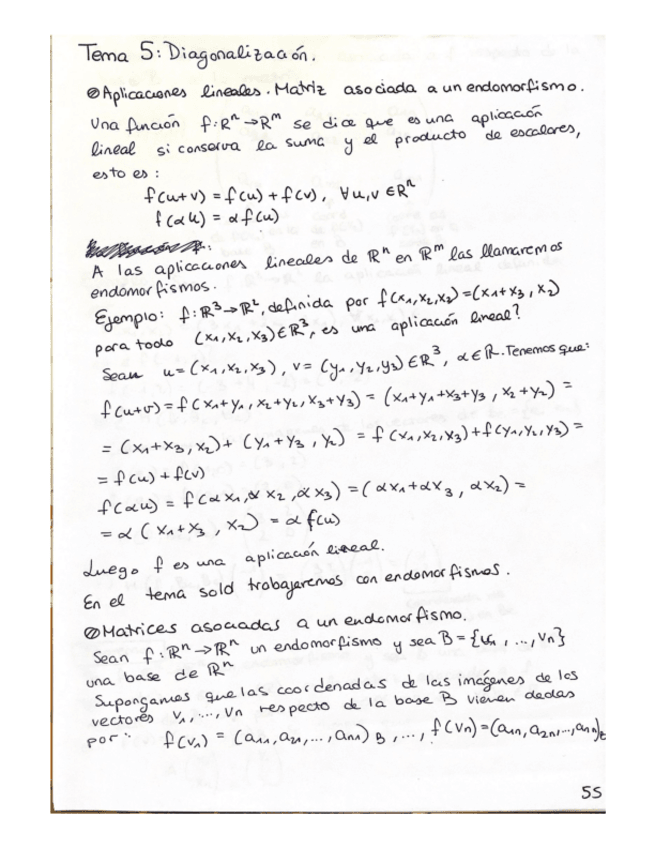 Tema 5: Diagonalización.
⊘ Aplicaciones lineales. Matriz asociada a un endomorfismo.
Una función f: Rⁿ → Rᵐ se dice que es una aplicación
lineal si conserva la suma y el producto de escalares,
esto es:
f(u+v) = f(u) + f(v), ∀u,v ∈ Rⁿ
f(αu) = α f(u)
A las aplicaciones lineales de Rⁿ en Rᵐ las llamaremos
endomorfismos.
Ejemplo: f: R³ → R², definida por f(x₁,x₂,x₃) = (x₁+x₃, x₂)
para todo (x₁,x₂,x₃) ∈ R³, ¿es una aplicación lineal?
Sean u = (x₁,x₂,x₃), v = (y₁,y₂,y₃) ∈ R³, α ∈ R. Tenemos que:
f(u+v) = f(x₁+y₁, x₂+y₂, x₃+y₃) = (x₁+y₁+x₃+y₃, x₂+y₂) =
= (x₁+x₃, x₂) + (y₁+y₃, y₂) = f(x₁,x₂,x₃) + f(y₁,y₂,y₃) =
= f(u) + f(v)
f(αu) = f(αx₁, αx₂, αx₃) = (αx₁+αx₃, αx₂) =
= α (x₁+x₃, x₂) = α f(u)
Luego f es una aplicación lineal.
En el tema sold trabajaremos con endomorfismos.
⊘ Matrices asociadas a un endomorfismo.
Sean f: Rⁿ → Rⁿ un endomorfismo y sea B = {v₁, ..., vn}
una base de Rⁿ
Supongamos que las coordenadas de las imágenes de los
vectores v₁, ..., vn respecto de la base B vienen dadas
por: f(v₁) = (a₁₁, a₂₁, ..., an₁)B, ..., f(vn) = (a₁n, a₂n, ..., ann)
55